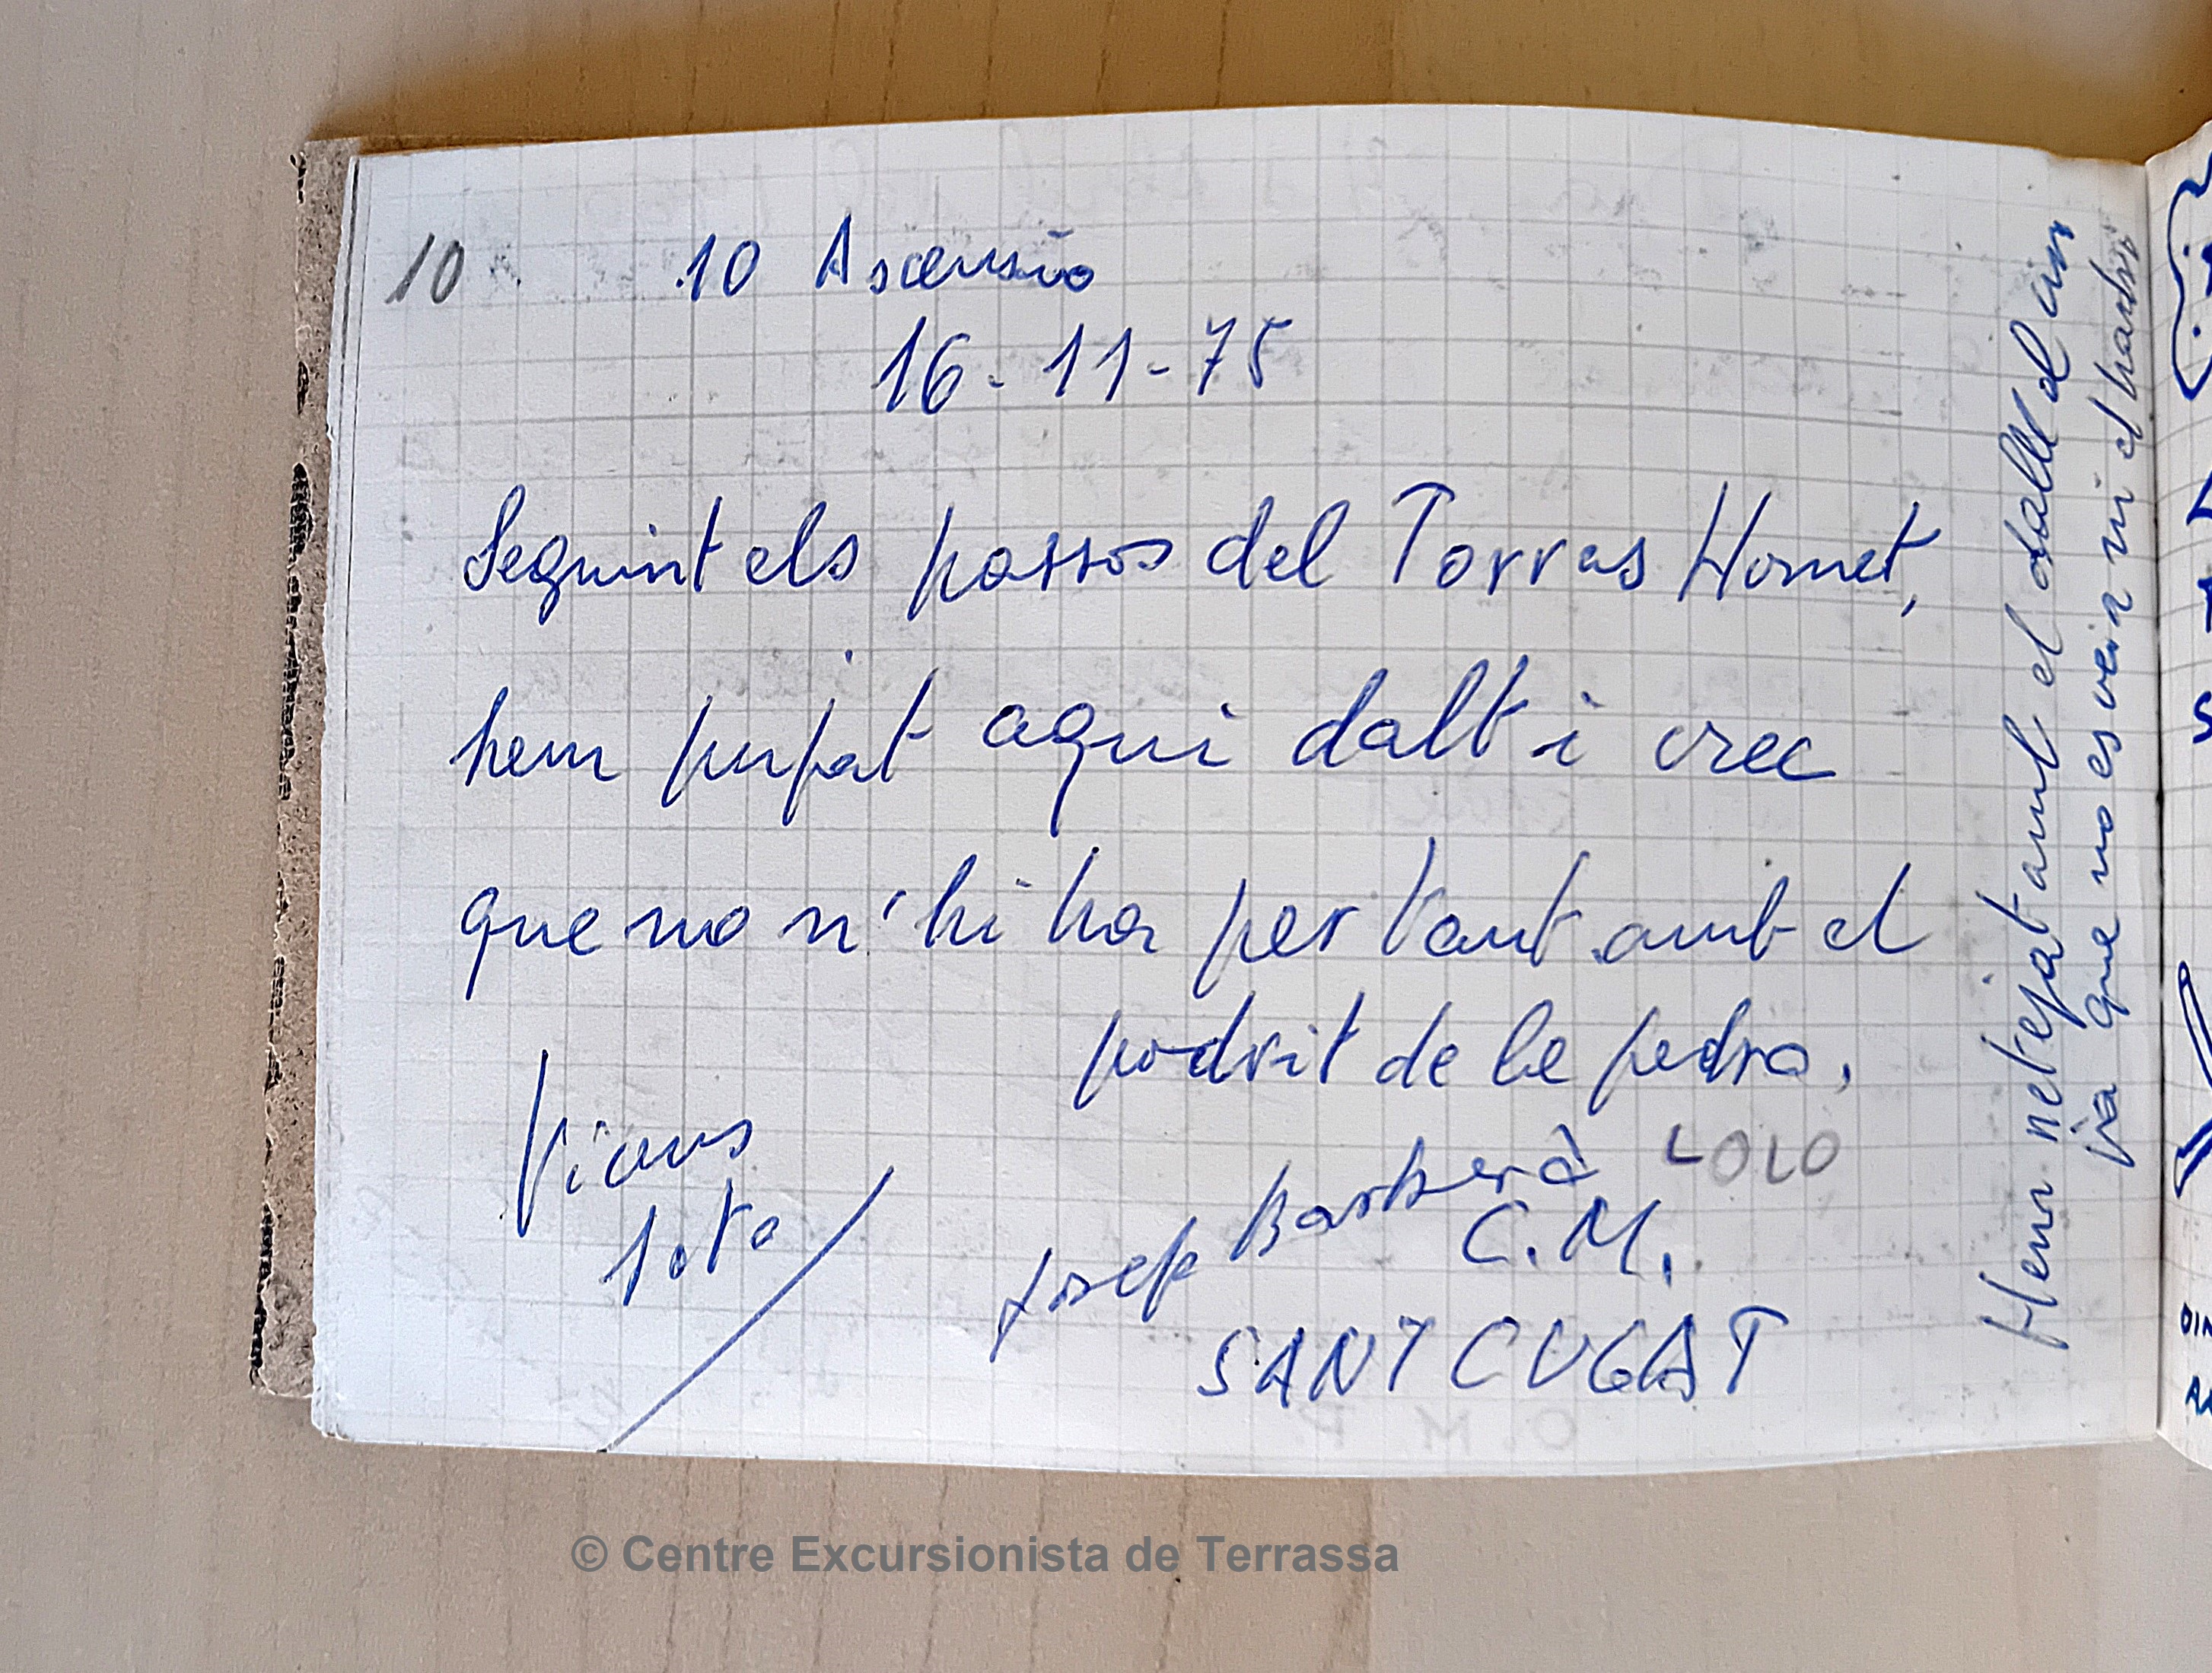 10
10 Ascensio
16-11-75
Seguint els passos del Torras Homet,
hem pujat aqui dalt i crec
que no n'hi ha per tant amb el
podrit de le pedra.
Vicens
Josep Barberà LOLO
C.M.
SANT CUGAT
Hem netejat amb el dalle d cim
ja que no es veia ni el
© Centre Excursionista de Terrassa